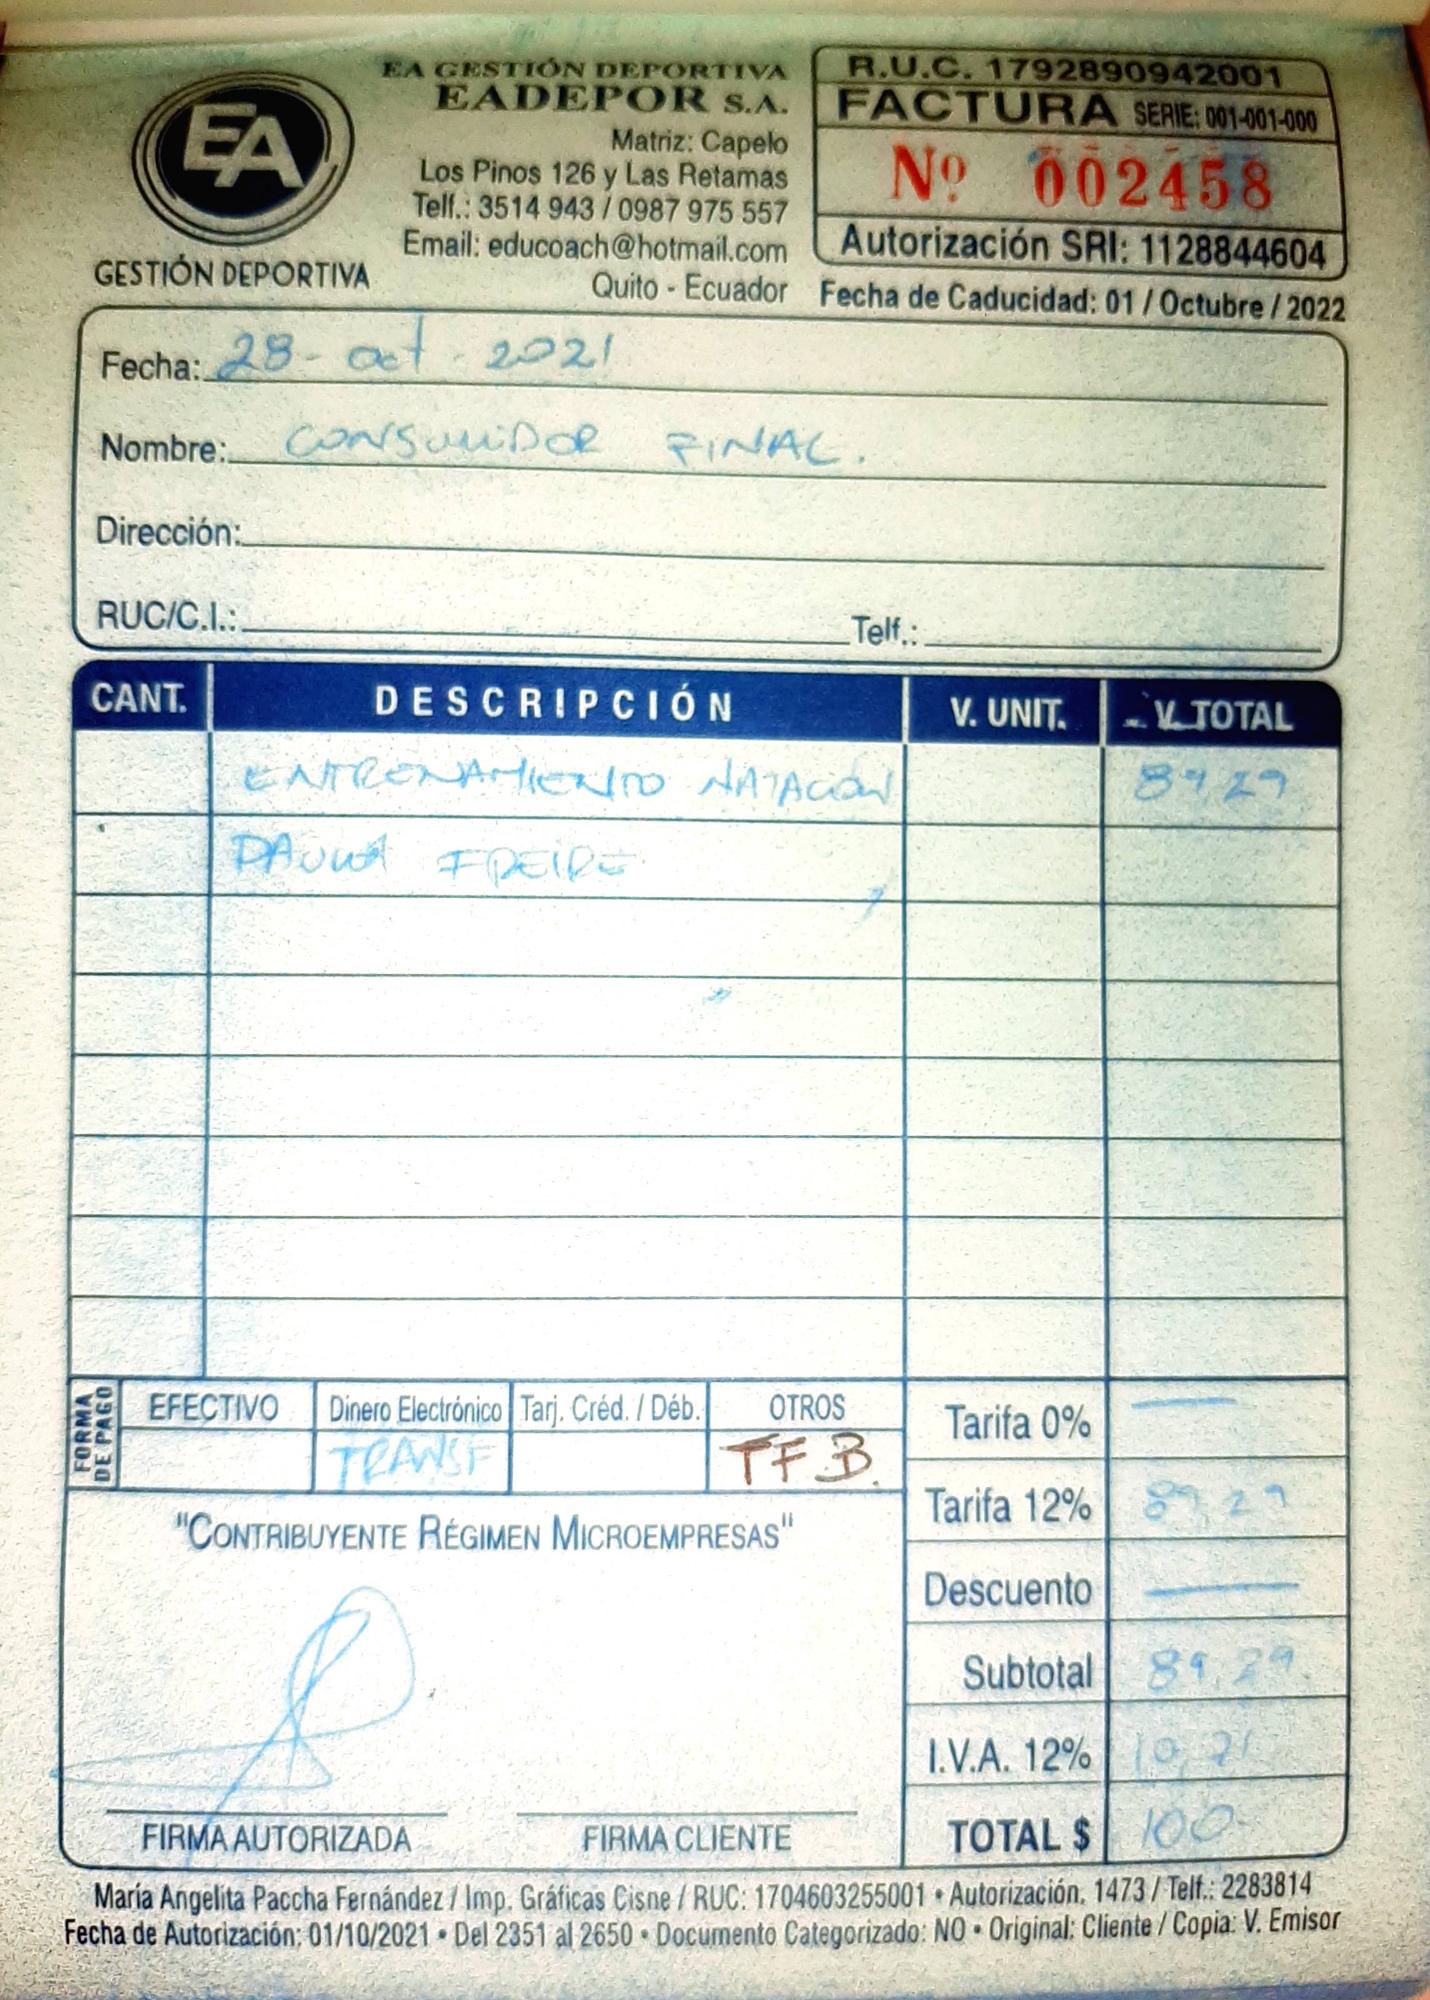 EA
GESTIÓN DEPORTIVA
EA GESTIÓN DEPORTIVA
EADEPOR S.A.
Matriz: Capelo
Los Pinos 126 y Las Retamas
Telf.: 3514 943 / 0987 975 557
Email: educoach@hotmail.com
Quito - Ecuador
R.U.C. 1792890942001
FACTURA SERIE: 001-001-000
Nº 002458
Autorización SRI: 1128844604
Fecha de Caducidad: 01 / Octubre / 2022
Fecha: 28 - oct - 2021
Nombre: CONSUMIDOR FINAL.
Dirección:
RUC/C.I.: Telf.:
CANT. DESCRIPCIÓN V. UNIT. V. TOTAL
ENTRENAMIENTO NATACIÓN 89,29
PAULA FREIRE
FORMA DE PAGO
EFECTIVO Dinero Electrónico Tarj. Créd. / Déb. OTROS
TRANSF TFB.
Tarifa 0% —
Tarifa 12% 89,29
Descuento —
Subtotal 89,29.
I.V.A. 12% 10,71
TOTAL $ 100-
"CONTRIBUYENTE RÉGIMEN MICROEMPRESAS"
FIRMA AUTORIZADA FIRMA CLIENTE
María Angelita Paccha Fernández / Imp. Gráficas Cisne / RUC: 1704603255001 • Autorización. 1473 / Telf.: 2283814
Fecha de Autorización: 01/10/2021 • Del 2351 al 2650 • Documento Categorizado: NO • Original: Cliente / Copia: V. Emisor